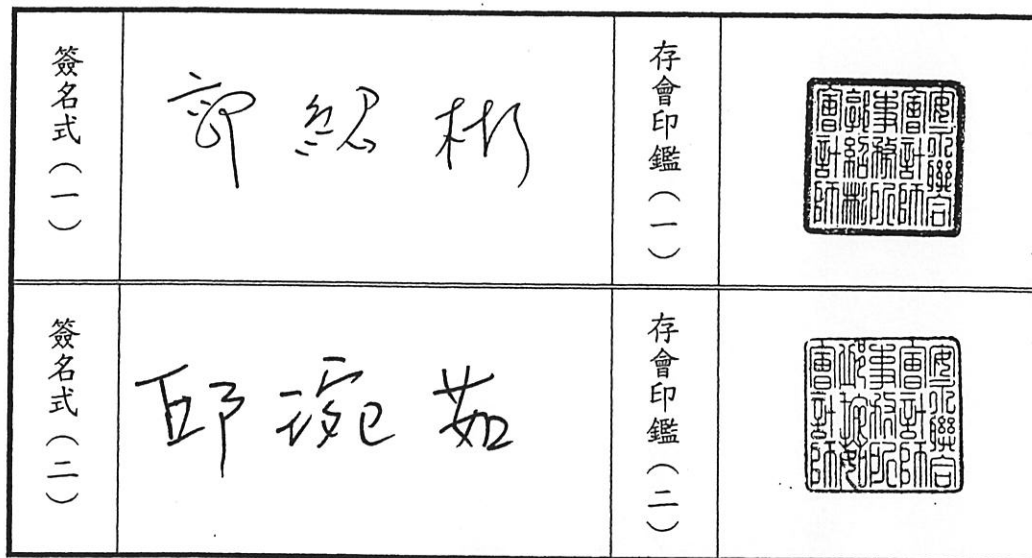 簽名式（一）
郭紹彬
存會印鑑（一）
安永聯合
會計師
事務所
郭紹彬
會計師
簽名式（二）
邱琬茹
存會印鑑（二）
安永聯合
會計師
事務所
邱琬茹
會計師